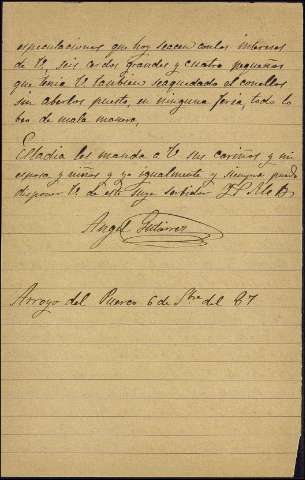 especulaciones que hoy se acen con los intereses
de V, seis cerdos grandes y cuatro pequeños
que tenia V tambien se a quedado el con ellos
sin aberlos puesto, en ninguna feria, todo lo
beo de mala manera,
Eladia les manda a V sus cariños y mi
esposa y niños y yo igualmente y siempre puede
disponer V. de este Suyo serbidor
Angel Gutierrez
Arroyo del Puerco 6 de Sbre del 87